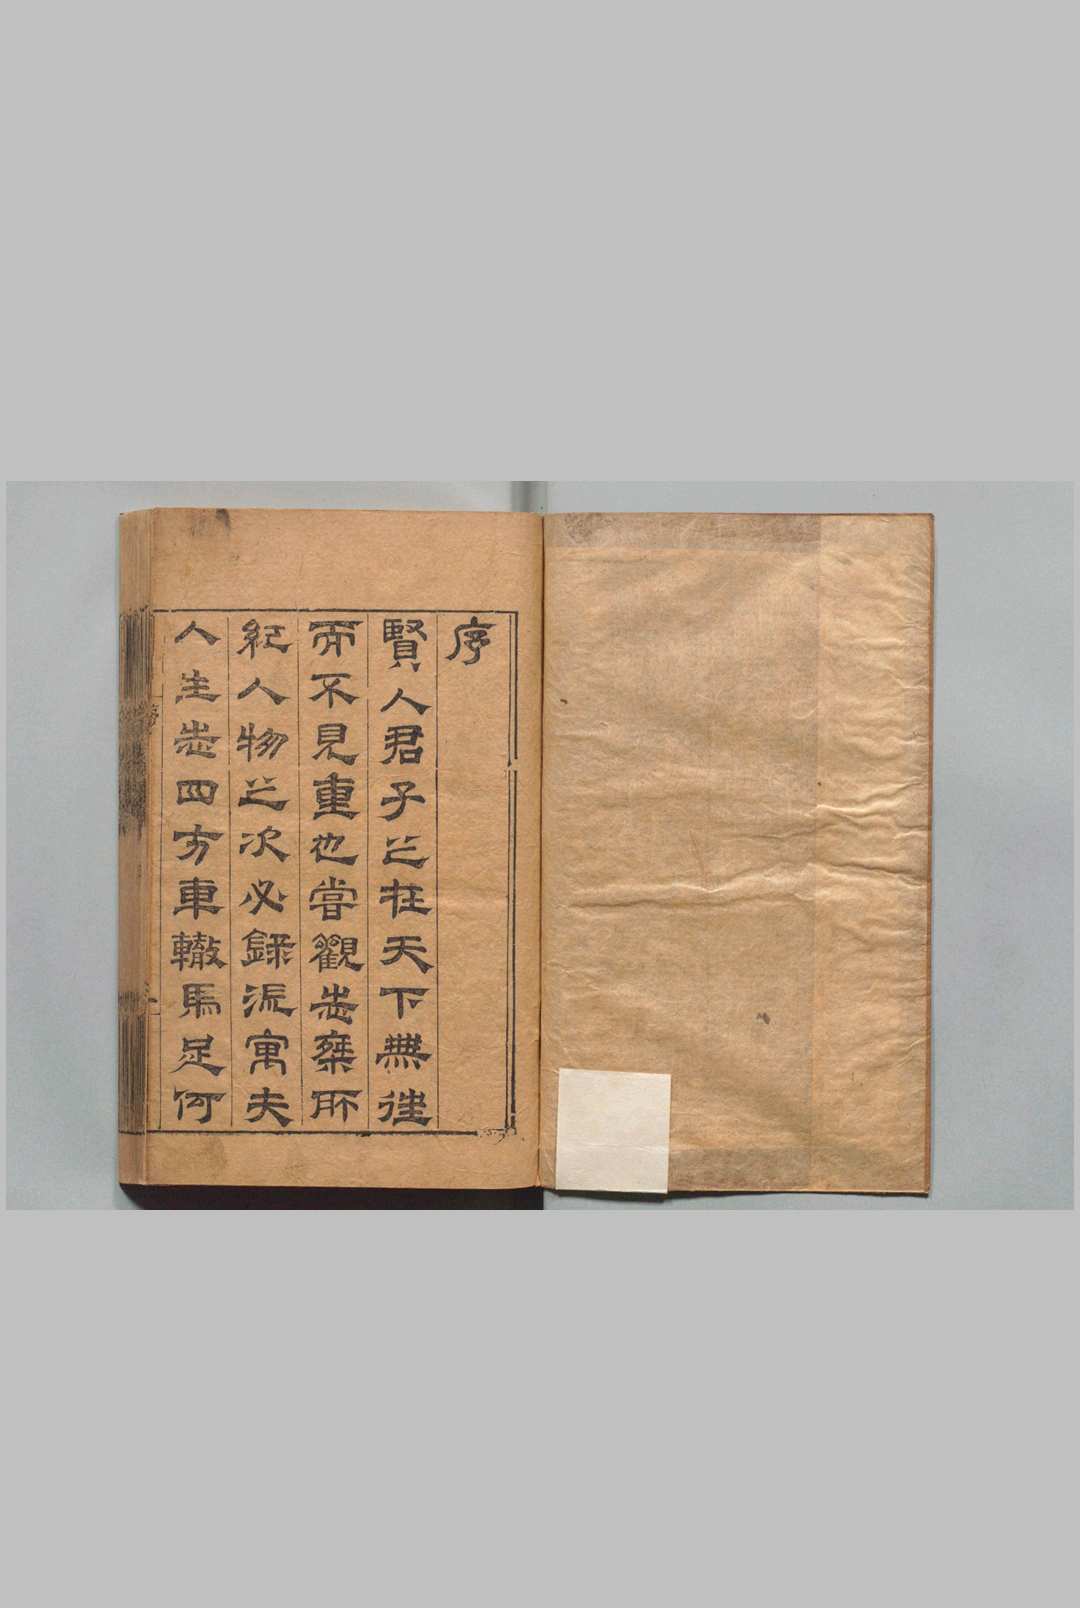 序
賢人君子之在天下無往
而不見重也嘗觀志乘所
紀人物之次必錄流寓夫
人生志四方車轍馬足何